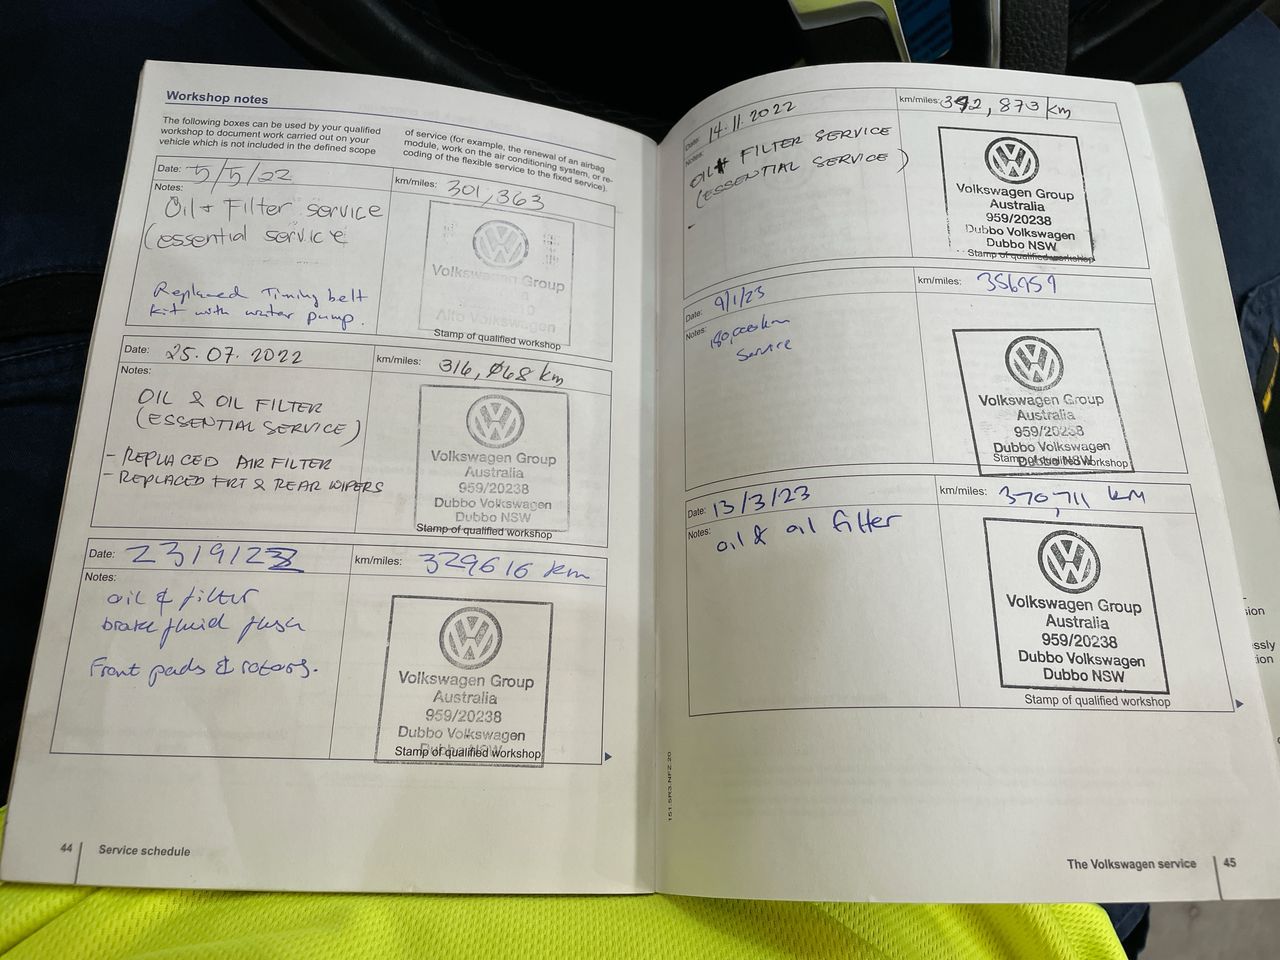 Workshop notes
The following boxes can be used by your qualified
workshop to document work carried out on your
vehicle which is not included in the defined scope
of service (for example, the renewal of an airbag
module, work on the air conditioning system, or re-
coding of the flexible service to the fixed service).
Date: 5/5/22
km/miles: 301,363
Notes:
Oil + Filter service
(essential service
Replaced Timing belt
kit with water pump.
Volkswagen Group
Alto Volkswagen
Stamp of qualified workshop
Date: 25.07.2022
km/miles: 316,068 km
Notes:
OIL & OIL FILTER
(ESSENTIAL SERVICE)
- REPLACED AIR FILTER
- REPLACED FRT & REAR WIPERS
Volkswagen Group
Australia
959/20238
Dubbo Volkswagen
Dubbo NSW
Stamp of qualified workshop
Date: 23/9/22
km/miles: 329616 km
Notes:
oil & filter
brake fluid flush
Front pads & rotors.
Volkswagen Group
Australia
959/20238
Dubbo Volkswagen
Dubbo NSW
Stamp of qualified workshop
44 Service schedule
Date: 14.11.2022
km/miles: 342,873 km
Notes:
OIL + FILTER SERVICE
(ESSENTIAL SERVICE)
-
Volkswagen Group
Australia
959/20238
Dubbo Volkswagen
Dubbo NSW
Stamp of qualified workshop
Date: 9/1/23
km/miles: 356959
Notes:
180,000km
Service
Volkswagen Group
Australia
959/20238
Dubbo Volkswagen
Dubbo NSW
Stamp of qualified workshop
Date: 13/3/23
km/miles: 370,711 km
Notes:
oil & oil filter
Volkswagen Group
Australia
959/20238
Dubbo Volkswagen
Dubbo NSW
Stamp of qualified workshop
151.5R3.NFZ.20
The Volkswagen service 45